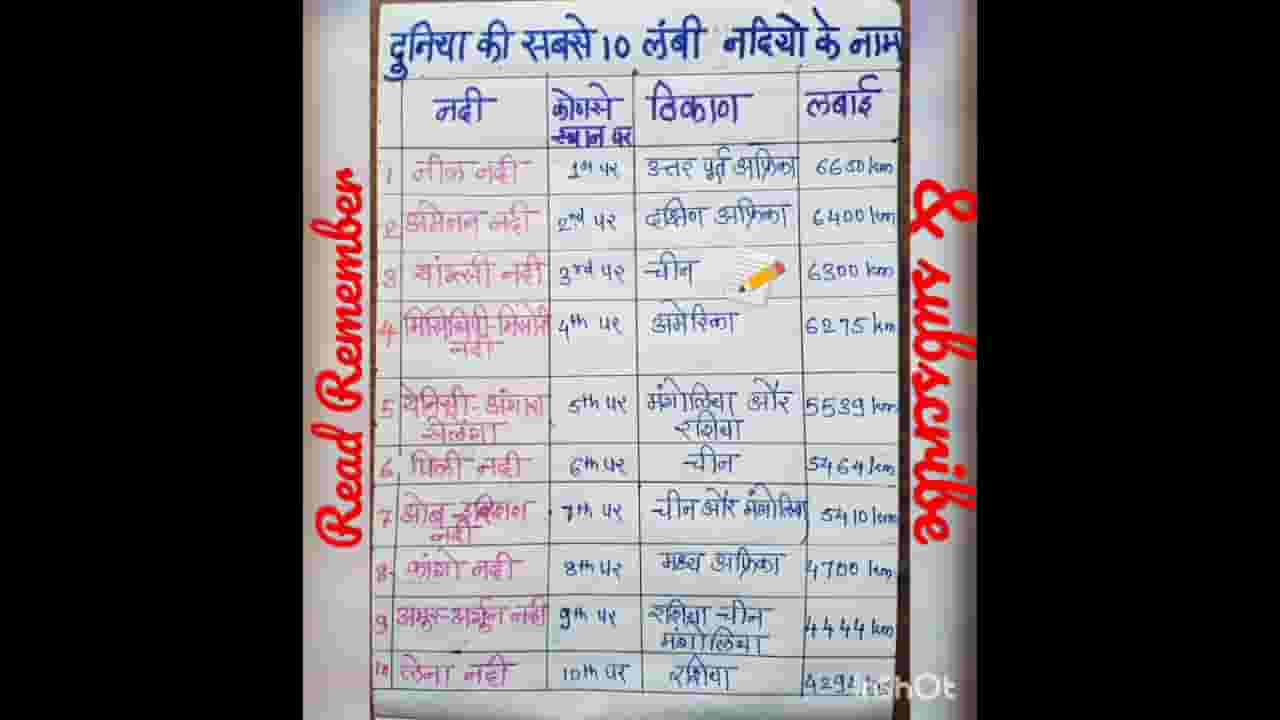 दुनिया की सबसे 10 लंबी नदियो के नाम
नदी कोणसे स्थान पर ठिकाण लबाई
1 नील नदी 1st पर उत्तर पूर्व अफ्रिका 6650 km
2 अमेजन नदी 2nd पर दक्षिन अफ्रिका 6400 km
3 यांगत्सी नदी 3rd पर चीन 6300 km
4 मिसिसिपी-मिसोरी नदी 4th पर अमेरिका 6275 km
5 येनिसी-अंगारा सेलंगा 5th पर मंगोलिया और रशिया 5539 km
6 पिली नदी 6th पर चीन 5464 km
7 ओब-इर्तिशन नदी 7th पर चीन और मंगोलिया 5410 km
8 कांगो नदी 8th पर मध्य अफ्रिका 4700 km
9 अमूर-अर्गुन नदी 9th पर रशिया चीन मंगोलिया 4444 km
10 लेना नदी 10th पर रशिया
Read Remember
& subscribe